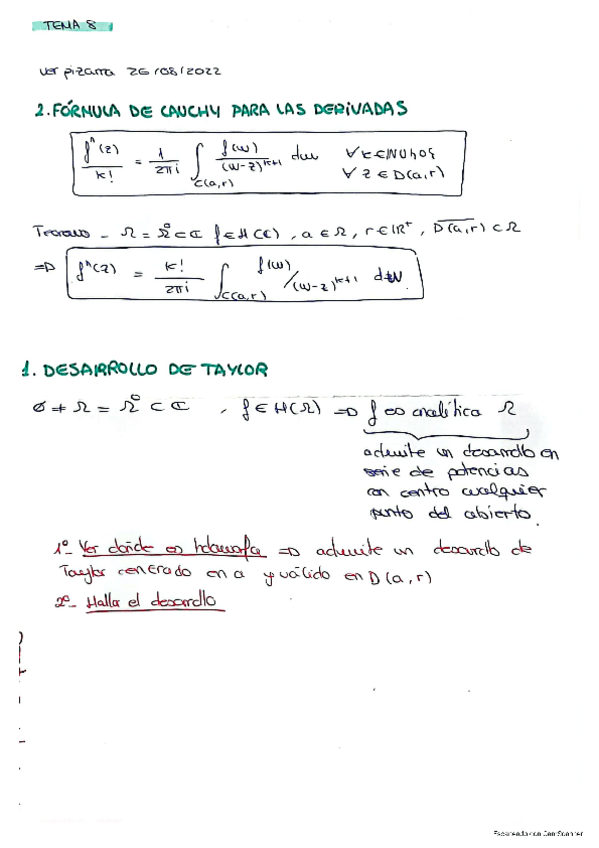 TEMA 8
ver pizarra 26/08/2022
2. FÓRMULA DE CAUCHY PARA LAS DERIVADAS
f^k(z)/k! = 1/2πi ∫_C(a,r) f(w)/(w-z)^k+1 dw ∀k∈ℕ∪{0} ∀z∈D(a,r)
Teorema - Ω = Ω° ⊂ ℂ f∈H(ℂ), a∈Ω, r∈ℝ⁺, D̅(̅a̅,̅r̅)̅ ⊂ Ω
=> f^k(z) = k!/2πi ∫_C(a,r) f(w)/(w-z)^k+1 dw
1. DESARROLLO DE TAYLOR
∅ ≠ Ω = Ω° ⊂ ℂ, f∈H(Ω) => f es analítica Ω
admite un desarrollo en
serie de potencias
con centro cualquier
punto del abierto.
1º- Ver dónde es holomorfa => admite un desarrollo de
Taylor centrado en a y válido en D(a,r)
2º- Halla el desarrollo
Escaneado con CamScanner